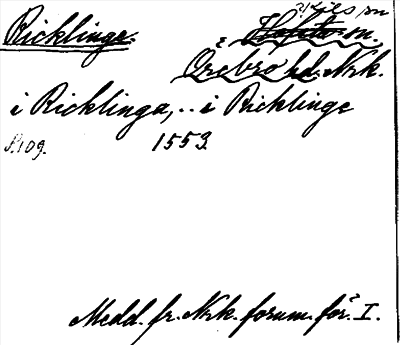 Ricklinge.
sn
sn.
Örebro hd. Nrk.
i Ricklinga, .. i Ricklinge
s. 109. 1553.
Medd. fr. Nrk. fornm.för. I.